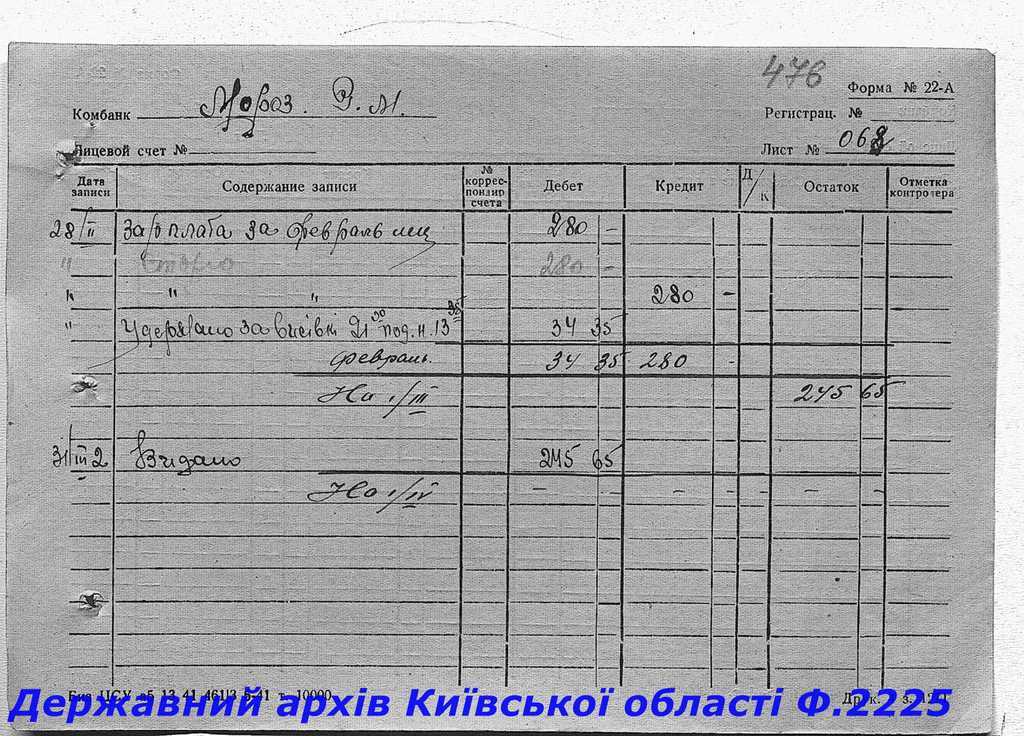 476
Форма № 22-А
Комбанк Мороз. Э. М.
Регистрац. №
Лицевой счет №
Лист № 068
Дата записи
Содержание записи
№ коррес-пондир счета
Дебет
Кредит
Д/К
Остаток
Отметка контролера
28/II Зарплата за февраль мц 280 -
" Сторно 280 -
" " " 280 -
" Удержано за 21 30 под. н. 13 35 34 35
февраль. 34 35 280 -
На 1/III 245 65
31/III 2 Видано 245 65
На 1/IV - - - - - -
ЦСУ 13 41 10000
Державний архів Київської області Ф.2225